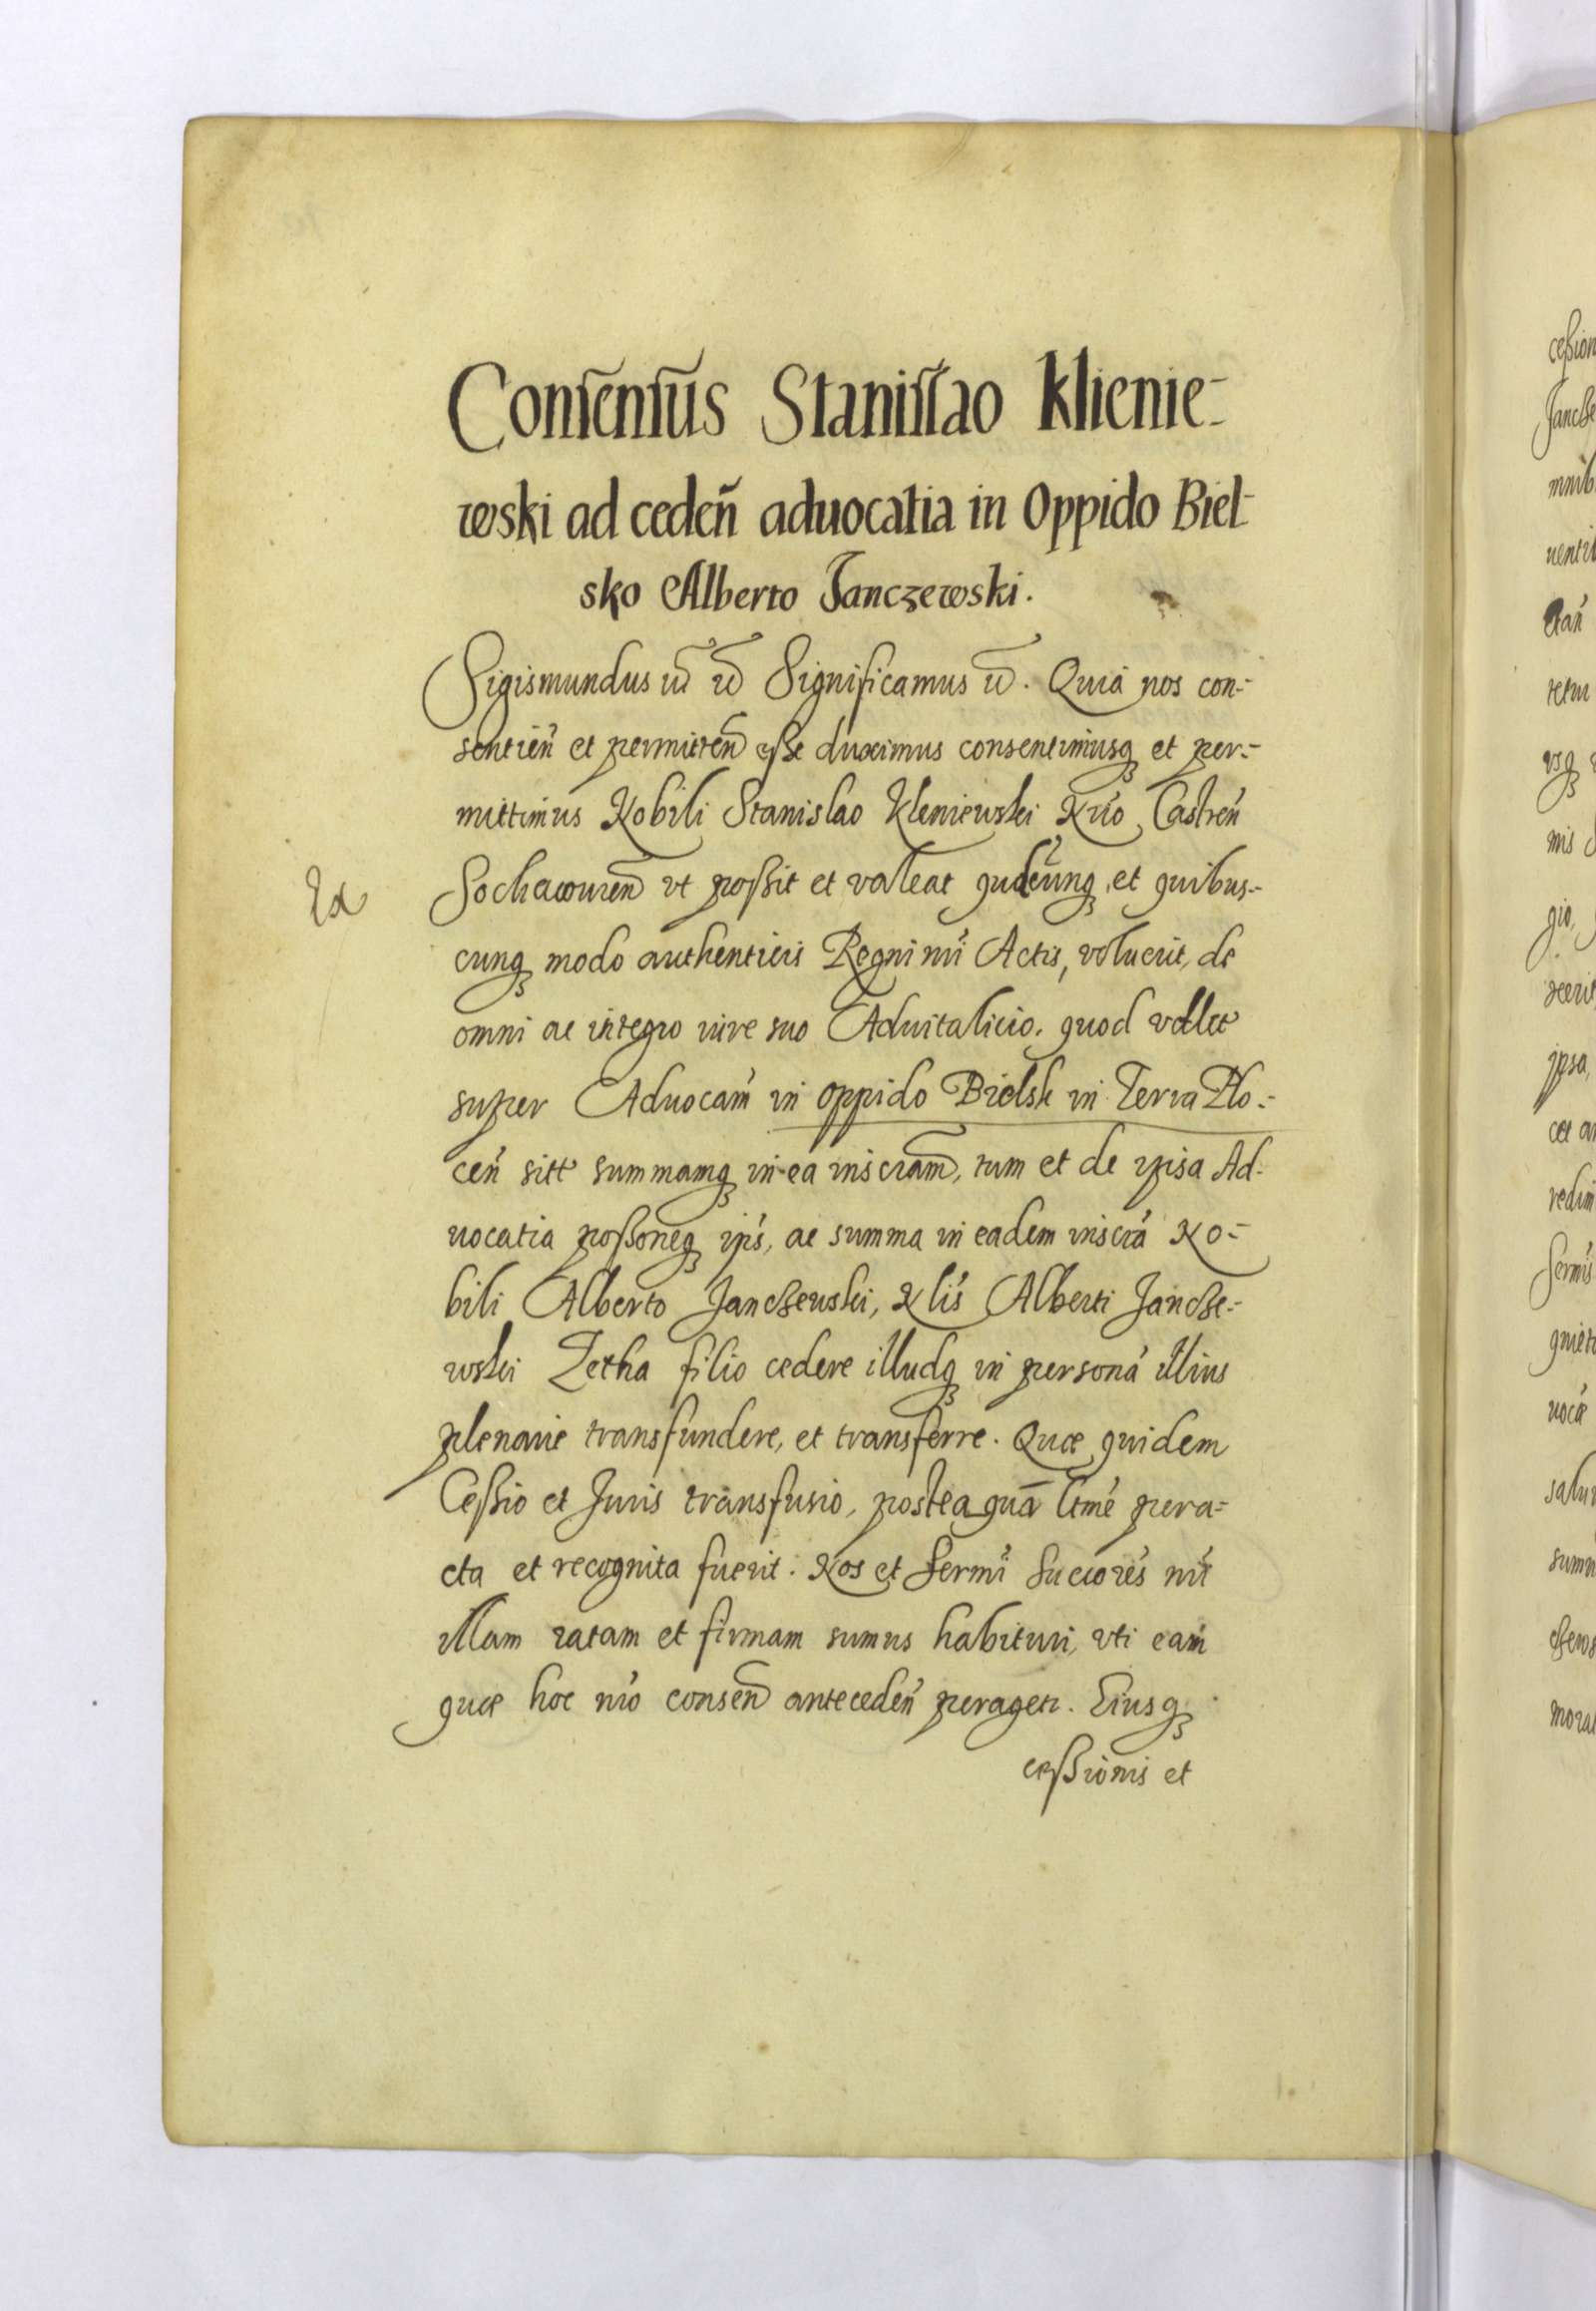 Consensus Stanislao Klienie-
wski ad cedeñ aduocatia in Oppido Biel-
sko Alberto Janczewski.
Sigismundus Significamus Quia nos con-
sentień et permitteñ esse duximus consentimusq et per-
mittimus Nobili Stanislao Kleniewski Nrio Castreń
Ex
Sochaczouien̄ vt possit et valeat quāđcunq, et quibus-
cunq modo authenticis Regni nri Actis, voluerit, de
omni ac integro iure suo Aduitalicio, quod vallet
super Aduocam̄ in oppido Bielsk in Terra Plo-
ceń sitt summamq in ea inscram̄, tum et de ipsa Ad-
uocatia possoneq ips̄, ac summa in eadem inscrá No-
bili Alberto Janczewski, Nlis̄ Alberti Jancze-
wski Zetha filio cedere illudq in personá illius
plenarie transfundere, et transferre. Quæ quidem
Cessio et Juris transfusio, postea quā ltmé pera-
cta et recognita fuerit. Nos et Sermi Succorés nri
illam ratam et firmam sumus habituri, vti eam
quæ hoc nro consen̄ anteceden̄ peragetr. Eiusq
cessionis et